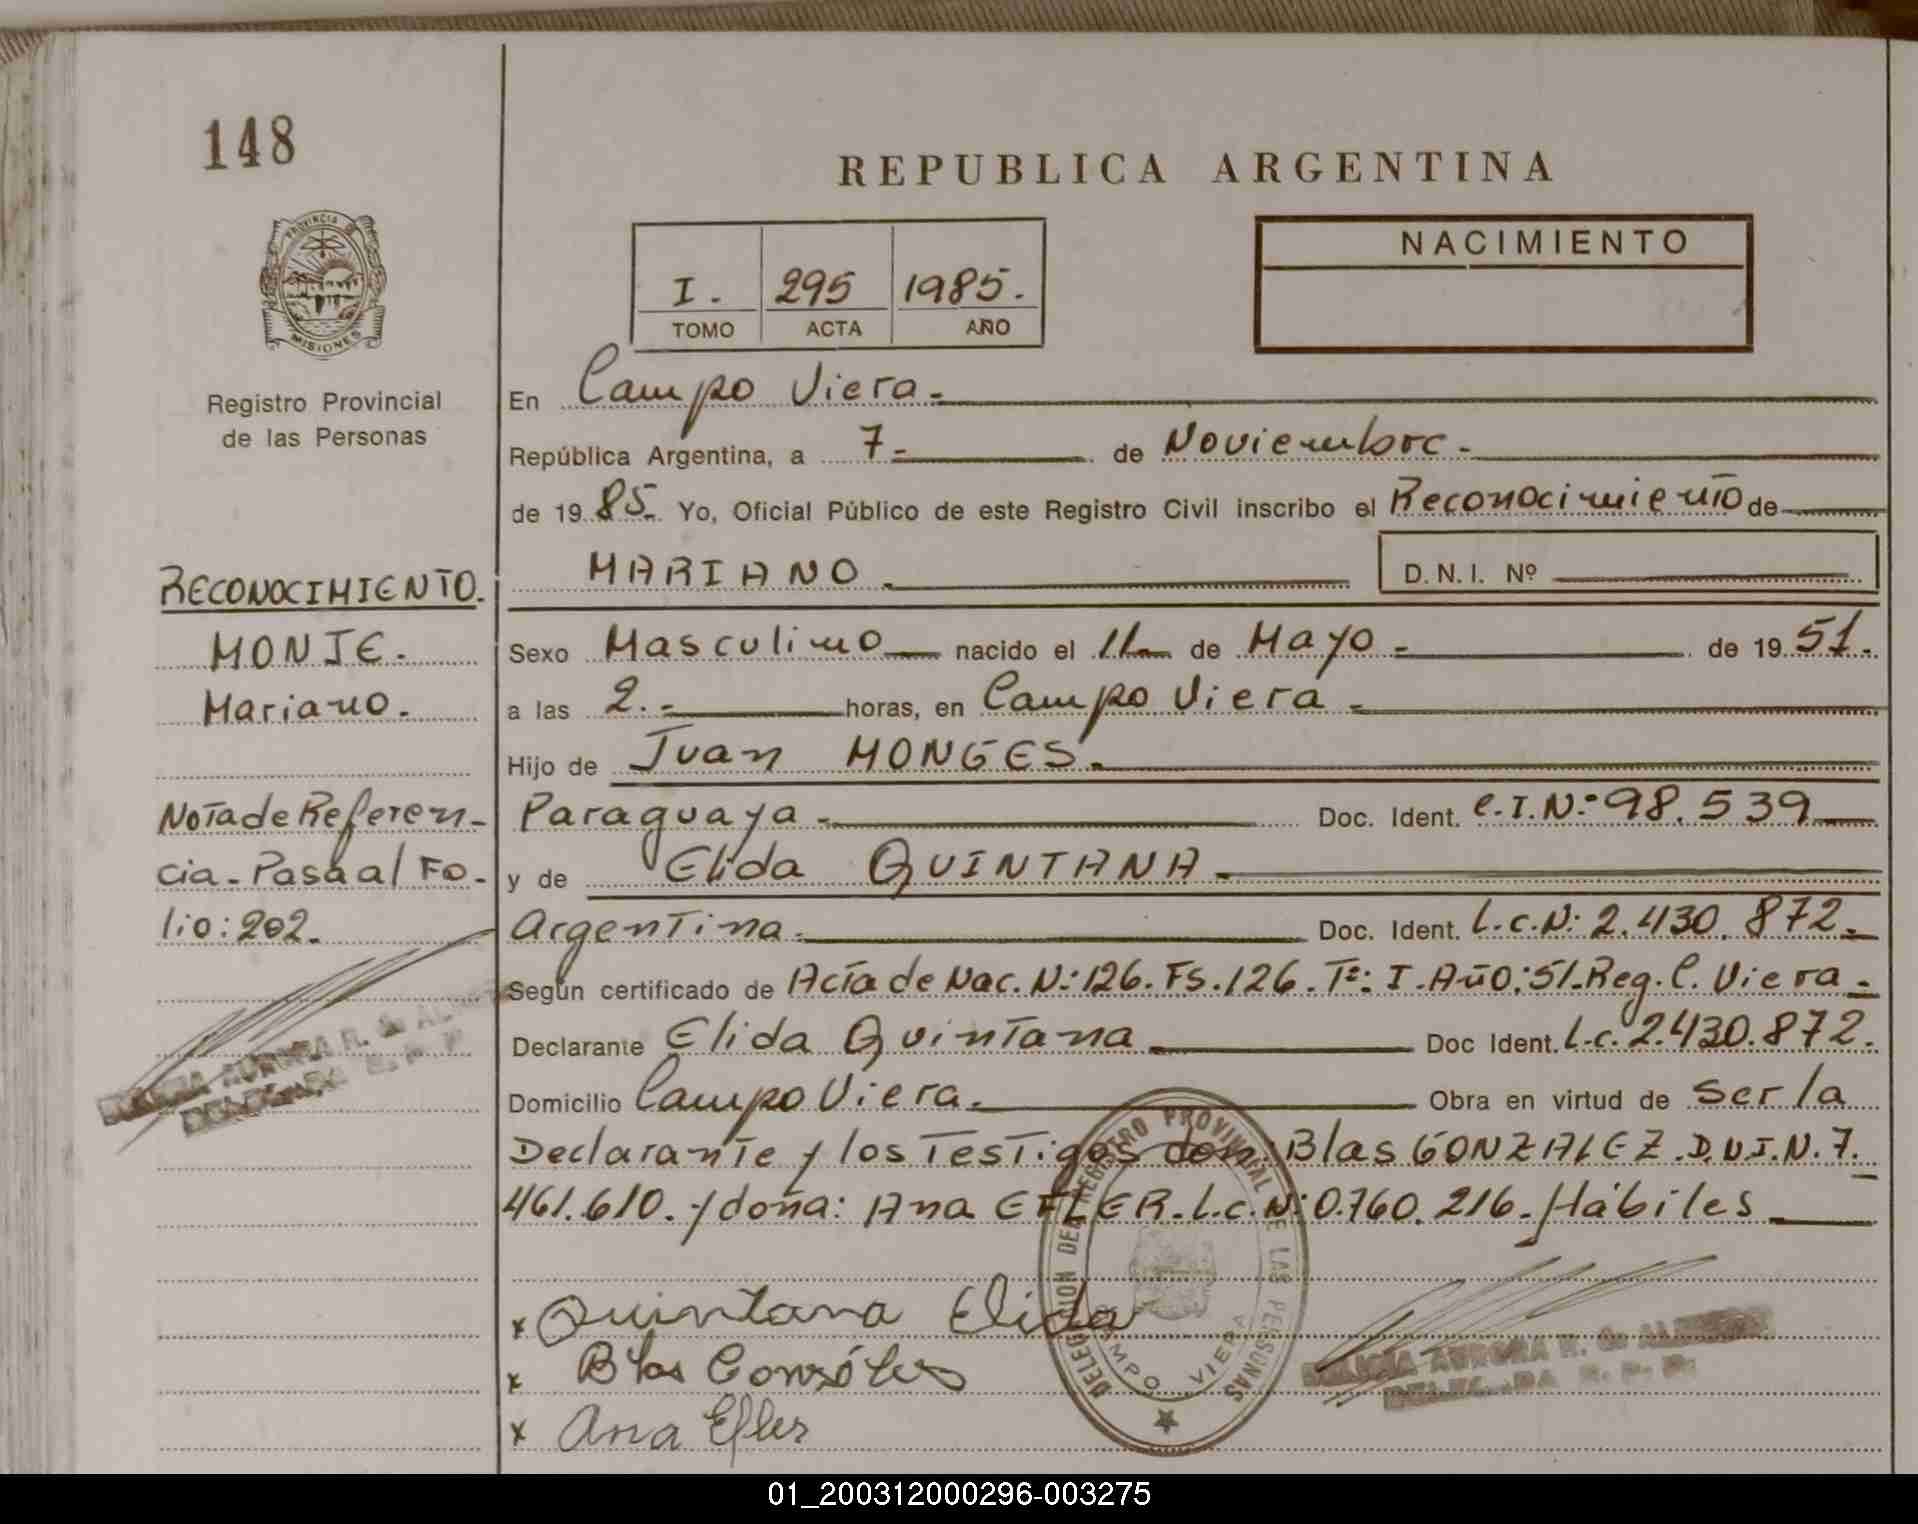 148
REPUBLICA ARGENTINA
PROVINCIA DE
MISIONES
Registro Provincial
de las Personas
I. 295 1985.
TOMO ACTA AÑO
NACIMIENTO
En Campo Viera.
República Argentina, a 7 de Noviembre.
de 1985. Yo, Oficial Público de este Registro Civil inscribo el Reconocimiento de
MARIANO. D.N.I. Nº
RECONOCIMIENTO.
MONJE.
Mariano.
Sexo Masculino nacido el 11 de Mayo de 1951.
a las 2. horas, en Campo Viera
Hijo de Juan MONGES.
Paraguaya Doc. Ident. C.I.N: 98.539
y de Elida QUINTANA
Argentina. Doc. Ident. L.C.N: 2.430.872.
Nota de Referen-
cia-Pasa al Fo-
lio: 202.
Según certificado de Acta de Nac. N: 126. Fs. 126. Tº: I. Año: 51. Reg. C. Viera
Declarante Elida Quintana Doc Ident. L.C. 2.430.872.
Domicilio Campo Viera. Obra en virtud de ser la
Declarante y los Testigos don: Blas GONZALEZ. D.N.I.N. 7.
461.610. y doña: Ana EFLER. L.C.N: 0.760.216. Hábiles
x Quintana Elida
x Blas Gonzáles
x Ana Efler
DELEGACION DEL REGISTRO PROVINCIAL DE LAS PERSONAS
CAMPO VIERA
AURORA R. de
AURORA R. de
01_200312000296-003275